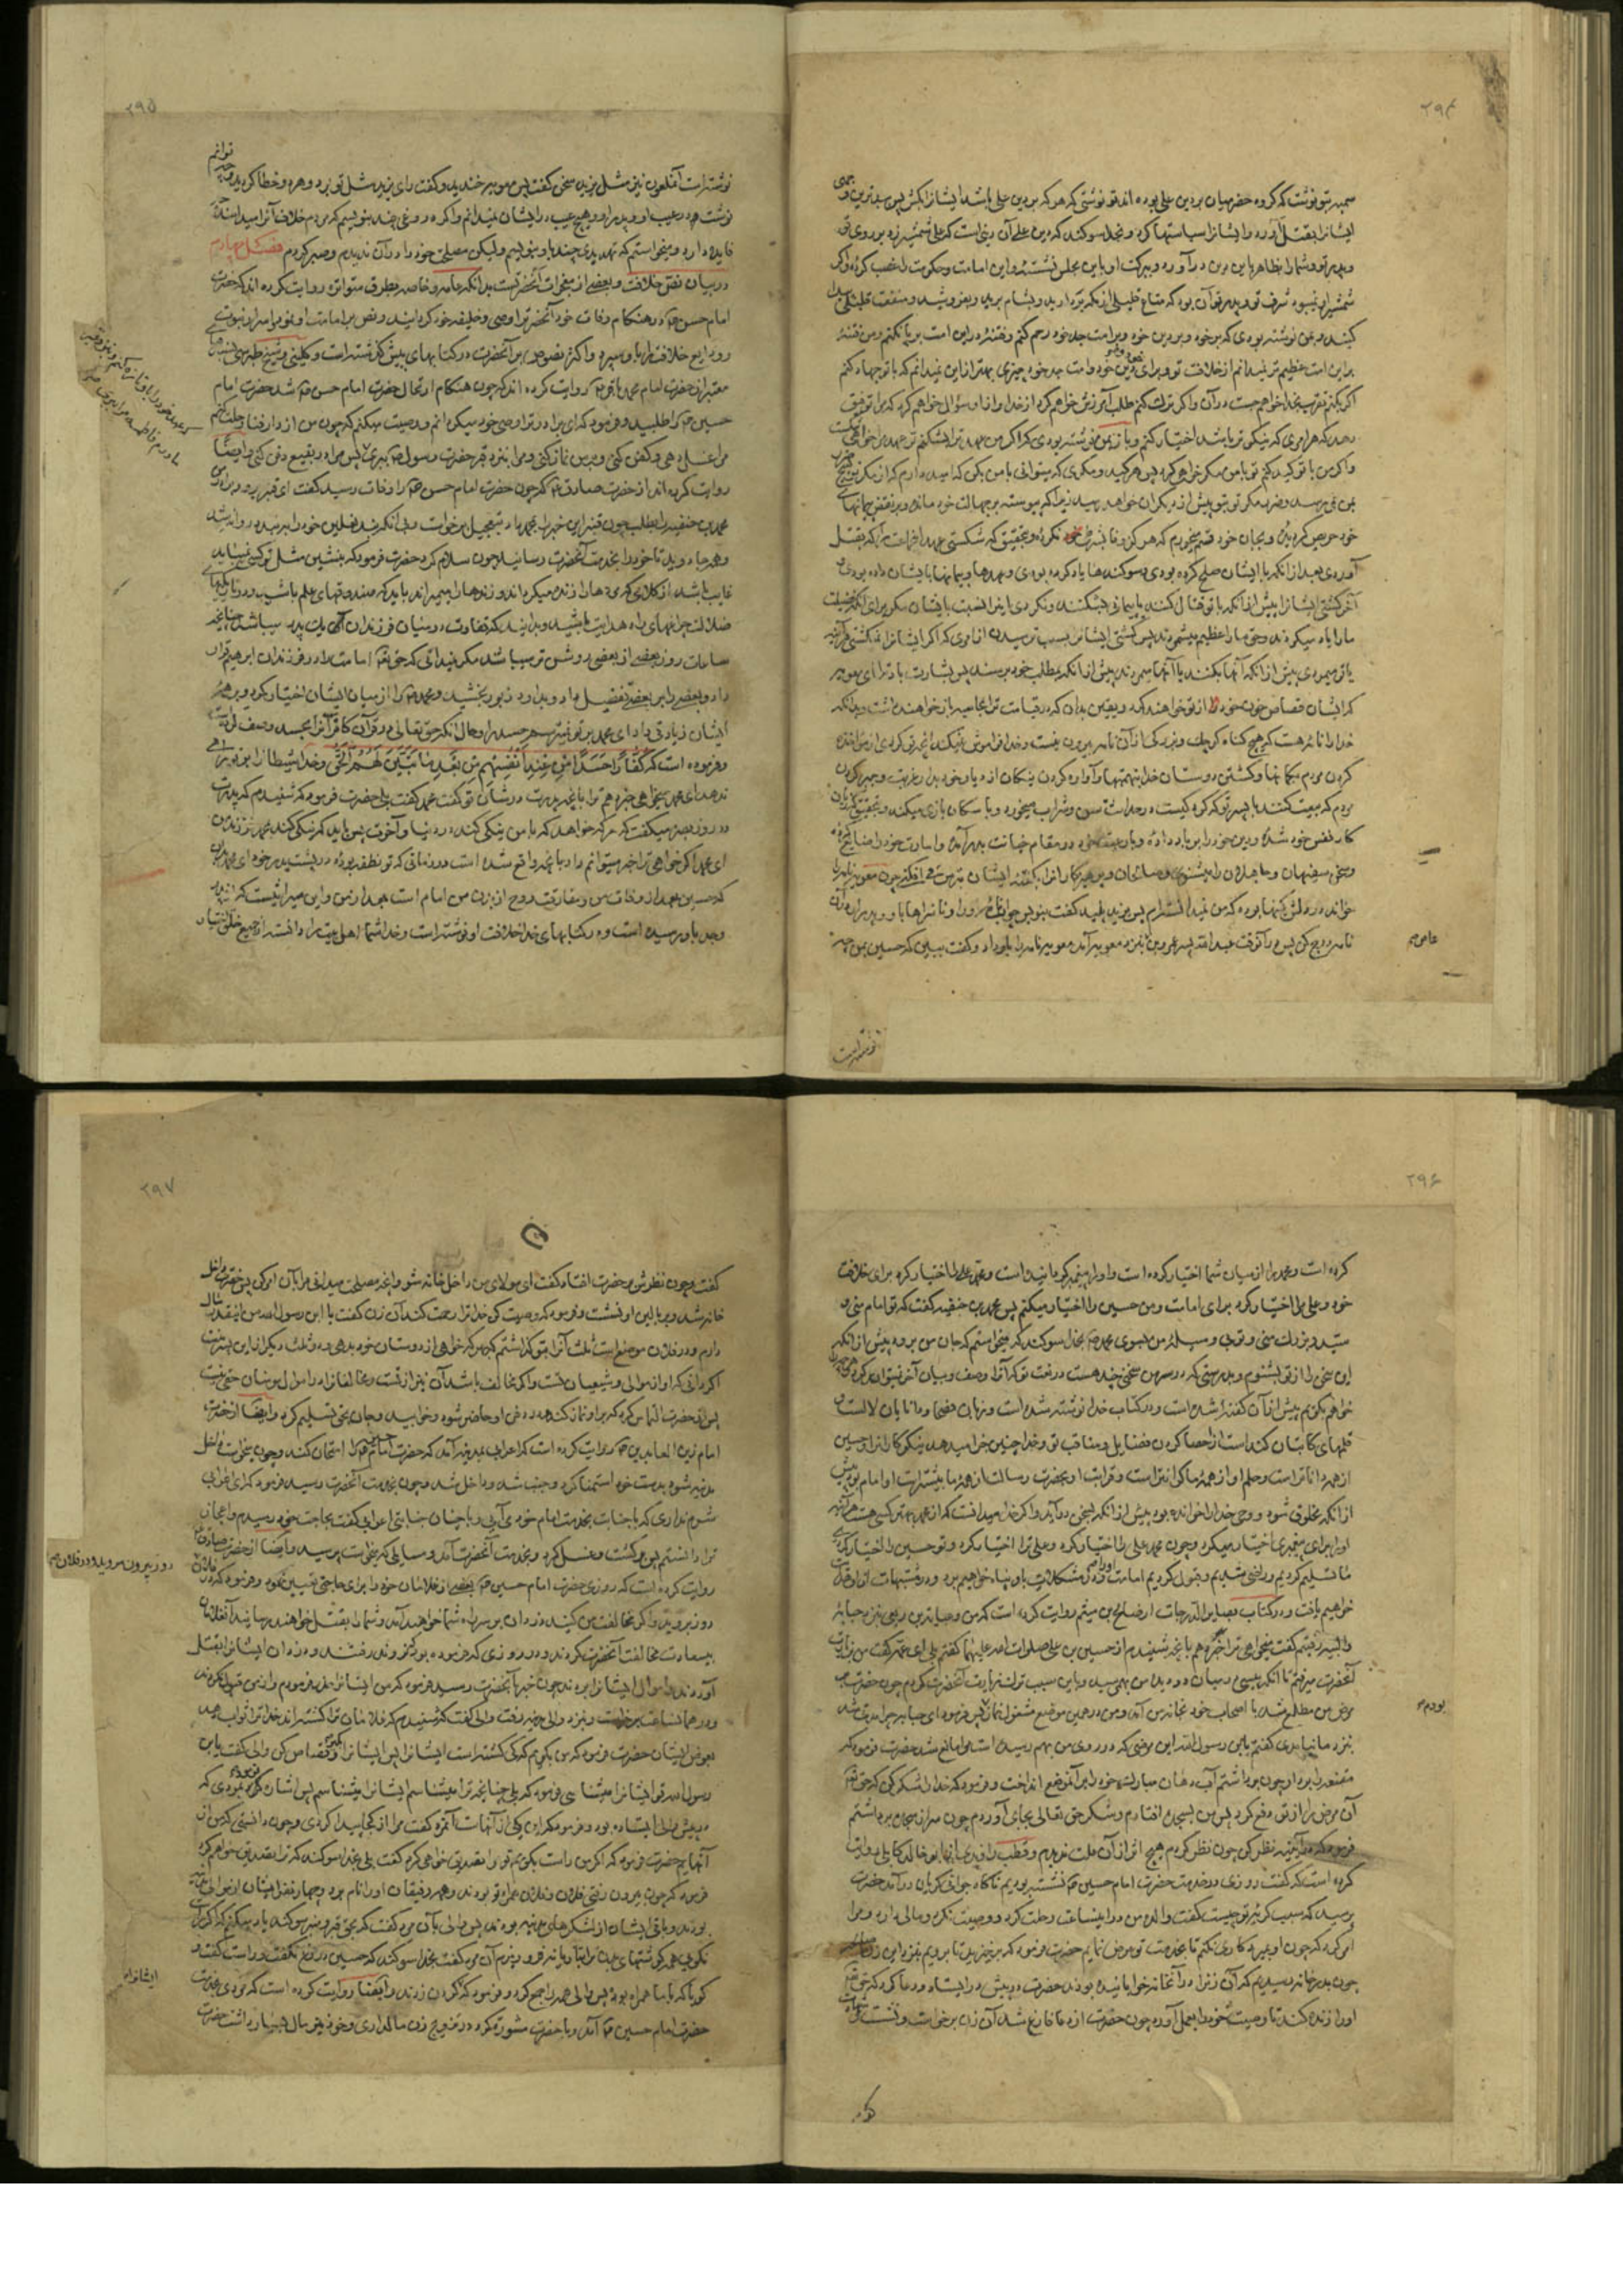 ۲۹۴
سمیه بتو نوشت که گروه حضرمیان بر دین علی بوده اند تو نوشتی که هر که بر دین علی باشد ایشانرا بکش پس سید ترین
ایشانرا بقتل آورد و ایشانرا سیاستها کرد و بخدا سوگند که دین علی آن دینی است که علی شمشیر زد بر روی تو
و پدر تو و شما را بظاهر باین دین در آورد و ببرکت او باین مجلس نشستهٔ و این امامت و حکومت را غصب کردهٔ و اگر
شمشیر او نمیبود شرف تو و پدر تو آن بود که متاع قلیلی از مکه بردارید و بشام برید و بفروشید و منفعت قلیلی
کنید و بمن نوشته بودی که بر خود و بر دین خود و بر امت جد خود رحم کنم و فتنه در این امت بر پا نکنم و من فتنهٔ
بر این امت عظیم تر نمیدانم از خلافت تو و برای دین خود و امت جد خود چیزی بهتر از این نمیدانم که با تو جهاد کنم
اگر بکنم تقرب بخدا خواهم جست در آن و اگر ترک کنم طلب آمرزش خواهم کرد از خدا و از او سؤال خواهم کرد که مرا توفیق
دهد که هر امری که نیکو تر باشد اختیار کنم و باز بمن نوشته بودی که اگر من عهد ترا بشکنم تو عهد مرا خواهی شکست
و اگر من با تو کید کنم تو با من مکر خواهی کرد پس هر کید و مکری که میتوانی با من بکن که امید دارم که از مکر تو هیچ
بمن نمی رسد و ضرر مکر تو بتو پیش از دیگران خواهد رسید زیرا که پیوسته بر جهالت خود مانده و بر نقض پیمانهای
خود حریص گردیدهٔ و بجان خود قسم میخورم که هرگز وفا بشرط خود نکردهٔ و بتحقیق که شکستی عهد مرا که بقتل
آوردی بعد از آنکه با ایشان صلح کرده بودی و سوگندها یاد کرده بودی و عهدها و پیمانها بایشان داده بودی
ایشانرا پیش از آنکه با تو قتال کنند یا پیمانی بشکنند و نکردی این را نسبت بایشان مگر برای آنکه فضیلت
ما را یاد میکردند و حق ما را عظیم میشمردند پس کشتی ایشانرا بسبب ترسیدن از امری که اگر ایشانرا نمیکشتی
یا تو میمردی پیش از آنکه آنها بکنند یا آنها میمردند پیش از آنکه بمطلب خود برسند پس بشارت باد ترا ای معویه
که ایشان قصاص خون خود را از تو خواهند کرد و یقین بدان که در قیامت ترا بمحاسبه باز خواهند داشت و بدانکه
خدا را نامهٔ هست که هیچ گناه کوچک و بزرگی از آن نامه بیرون نیست و خدا فراموش نمیکند آنچه تو کردی از
کردن مردم بگمانها و کشتن دوستان خدا بتهمتها و آواره کردن نیکان از دیار خود بدار غربت و جبر کردن
مردم که بیعت کنند با پسر تو که کودکیست در حداثت سن و شراب میخورد و با سگان بازی میکند و بتحقیق
کار نفس خود شدهٔ و دین خود را بر باد دادهٔ و با رعیت خود در مقام خیانت بدر آمدهٔ و امانت خود را ضایع کردهٔ
و سخن سفیهان و جاهلان را میشنوی
نامه درج کن پس در آنوقت عبد الله پسر عمرو بن بنزد معویه آمد معویه نامه را باو داد و گفت ببین که حسین بمن چه
نوشته است
عاص هم

۲۹۵
نوشته است آنملعون نیز مثل یزید سخنی گفت پس معویه خندید و گفت رای یزید مثل تو بود و هر دو خطا کردید
فایده ندارد و میخواستم که تهدیدی چند باو بنویسم و لیکن مصلحت خود را در آن ندیدم و صبر کردم فصل چهارم
در بیان نص خلافت و بعضی از معجزات آنحضرتست بدانکه عامه و خاصه بطرق متواتره روایت کرده اند که حضرت
امام حسن در هنگام وفات خود آنحضرترا وصی و خلیفه خود گردانید و نص بر امامت او نمود و اسرار نبوت
و ودایع خلافت را باو سپرد و اکثر نصوص بر آنحضرت در کتابهای پیش گذشته است و کلینی و شیخ طبرسی بسند
معتبر از حضرت امام محمد باقر روایت کرده اند که چون هنگام ارتحال حضرت امام حسن شد حضرت امام
حسین را طلبید و فرمود که ای برادر ترا وصی خود میگردانم و وصیت میکنم که چون من از دار فنا رحلت کنم
مرا غسل دهی و کفن کنی و بر من نماز کنی و مرا بنزد قبر حضرت رسول ص بری پس مرا در بقیع دفن کنی و ایضا
روایت کرده اند از حضرت صادق که چون حضرت امام حسن را وفات رسید گفت ای قنبر برو برادرم
محمد بن حنفیه را بطلب چون قنبر این خبر را بمحمد داد بتعجیل برخواست و بی آنکه بند نعلین خود را ببندد روانه شد
و همه جا دوید تا خود را بخدمت آنحضرت رسانید چون سلام کرد حضرت فرمود که بنشین مثل تو کسی نمیباید
غایب باشد از کلامی که مرده ها را زنده میگرداند و زنده ها را میمیراند باید که صندوقهای علم باشید و در تاریکیهای
ضلالت چراغهای راه هدایت باشید و بدانید که تفاوت در میان فرزندان یک پدر میباشد چنانچه
ساعات روز بعضی از بعضی روشن تر میباشد مگر نمیدانی که حق تعالی امامت را در فرزندان ابراهیم قرار
داد و بعضی را بر بعضی تفضیل داد و بداود زبور بخشید و محمد ص را از میان ایشان اختیار کرد و بر همهٔ
ایشان زیادتی داد ای محمد بر تو نمیترسم حسد را و حال آنکه حق تعالی در قرآن کافرانرا بحسد وصف
فرموده است که كُفَّارًا حَسَدًا مِّنْ عِندِ أَنْفُسِهِم مِّن بَعْدِ مَا تَبَيَّنَ لَهُمُ الْحَقُّ و خدا شیطانرا بر تو
ندهد ای محمد میخواهی خبر دهم ترا بآنچه پدرت در شان تو گفت محمد گفت بلی حضرت فرمود که شنیدم که پدرت
در روز بصره میگفت که هر که خواهد که با من نیکی کند در دنیا و آخرت پس باید که نیکی کند بمحمد فرزند من
ای محمد اگر خواهی ترا خبر میتوانم داد بآنچه واقع شده است در وقتی که تو نطفه بودی در پشت پدر خود ای محمد
که حسین بعد از وفات من و مفارقت روح از بدن من امام است بعد از من و این میراثیست که از پدر
و جد باو رسیده است و در کتابهای خدا خلافت او نوشته است و خدا شما اهل بیت را دانسته از جمیع خلق

۲۹۶
کرده است و محمد را از میان شما اختیار کرده است و او را پیغمبر گردانیده است و محمد علی را اختیار کرد برای خلافت
خود و علی مرا اختیار کرد برای امامت و من حسین را اختیار میکنم پس محمد بن حنفیه گفت که تو امام منی و
سید و بزرگ منی و توئی وسیلهٔ من بسوی محمد ص بخدا سوگند که میخواستم که جان من برود پیش از آنکه
این سخن را از تو بشنوم و بدرستی که در سر من سخنی چند هست در نعت تو که آنرا وصف و بیان آخر نمیتوان کرد
خواهم بگویم پیش از آن گفته شده است و در کتاب خدا نوشته شده است و زبان فصحا و دانایان لالست
قلمهای کاتبان کند است از احصا کردن فضایل و مناقب تو و خدا چنین جزا میدهد نیکو کارانرا و حسین
از همه داناتر است و حلم او از همهٔ ما گرانتر است و قرابت او بحضرت رسالت از همهٔ ما بیشتر است او امام بود پیش
از آنکه مخلوق شود و وحی خدا را خوانده بود پیش از آنکه بسخن در آید و اگر خدا میدانست که از محمد بهتر کسی هست هر آینه
او را برای پیغمبری اختیار میکرد و چون محمد علی را اختیار کرد و علی ترا اختیار کرد و تو حسین را اختیار کردی
ما تسلیم کردیم و راضی شدیم و قبول کردیم امامت او را و در مشکلات باو پناه خواهیم برد و در مشتبهات از او هدایت
خواهیم یافت و در کتاب بصایر الدرجات از صالح بن میثم روایت کرده است که من و عبایه بن ربعی بنزد حبابه
والبیه رفتیم گفت میخواهی ترا خبر دهم بآنچه شنیدم از حسین بن علی صلوات الله علیهما گفتم بلی ای عمه گفت من بزیارت
آنحضرت میرفتم تا آنکه پیسی در میان دو دیدهٔ من بهم رسید و باین سبب ترک زیارت آنحضرت کردم چون حضرت بر
مرض من مطلع شد با اصحاب خود بخانهٔ من آمد و من در همین موضع مشغول نماز بودم فرمود ای حبابه چرا دیر شد
بنزد ما نیامدی گفتم یابن رسول الله این مرضی که در روی من بهم رسیده است مرا مانع شد حضرت فرمود که
مقنعه را بردار چون برداشتم آب دهان مبارک خود را بر آنموضع انداخت و فرمود که خدا را شکر کن که حق تعالی
آن مرض را از تو دفع کرد پس من بسجده افتادم و شکر حق تعالی بجای آوردم چون سر از سجده برداشتم
فرمود که در آیینه نظر کن چون نظر کردم هیچ اثر از آن علت ندیدم و قطب راوندی از ابو خالد کابلی روایت
کرده است که گفت روزی در خدمت حضرت امام حسین نشسته بودیم ناگاه جوانی گریان در آمد حضرت
پرسید که سبب گریهٔ تو چیست گفت والدهٔ من در اینساعت رحلت کرد و وصیت نکرد و مالی دارد و مرا
امر کرد که چون او بمیرد کاری نکنم تا بخدمت تو عرض نمایم حضرت فرمود که برخیزید تا برویم بنزد این زن صالحه
چون بدر خانه رسیدیم که آن زنرا در آنخانه خوابانیده بودند حضرت در پیش در ایستاد و دعا کرد که حق تعالی
او را زنده کند تا وصیت خود را بعمل آورد چون حضرت از دعا فارغ شد آن زن برخواست و نشست و شهادت
بودم

۲۹۷
گفت و چون نظرش بر حضرت افتاد گفت ای مولای من داخل خانه شو و آنچه مصلحت میدانی مرا بآن امر کن پس حضرت داخل
خانه شد و بر بالین او نشست و فرمود که وصیت کن خدا ترا رحمت کند آن زن گفت یا ابن رسول الله من اینقدر مال
دارم و در فلان موضع است ثلث آنرا بتو گذاشتم که بهر که خواهی از دوستان خود بدهی و دو ثلث دیگر از این پسر منست
اگر دانی که او از موالی و شیعیان تست و اگر مخالف باشد آن نیز از تست و مخالفانرا در اموال مومنان حقی نیست
پس از حضرت التماس کرد که بر او نماز کند و در دفن او حاضر شود و خوابید و جان بحق تسلیم کرد و ایضا از حضرت
امام زین العابدین روایت کرده است که اعرابی بمدینه آمد که حضرت امام حسین را امتحان کند و چون میخواست داخل
مدینه شود بدست خود استمنا کرد و جنب شد و داخل شد و چون بخدمت آنحضرت رسید فرمود که ای اعرابی
شرم نداری که با جنابت بخدمت امام خود می آئی و با چنان جنابتی اعرابی گفت بحاجت خود رسیدم و اعجاز
ترا دانستم پس برگشت و غسل کرد و بخدمت آنحضرت آمد و مسایلی که میخواست پرسید و ایضا از حضرت صادق
روایت کرده است که روزی حضرت امام حسین بعضی از غلامان خود را برای حاجتی تعیین نمود و فرمود که در فلان
روز بروید و اگر مخالفت من کنید دزدان بر سر راه شما خواهند آمد و شما را بقتل خواهند رسانید آن غلامان
بیسعادت مخالفت آنحضرت کردند و در روزی که فرموده بود نروند رفتند و دزدان ایشانرا بقتل
آوردند و اموال ایشانرا بردند چون خبر بآنحضرت رسید فرمود که من ایشانرا حذر فرمودم و از من قبول نکردند
و در همانساعت برخواست و بنزد والی مدینه رفت والی گفت که شنیدم که غلامان ترا کشته اند خدا ترا ثواب دهد
بعوض ایشان حضرت فرمود که من بگویم که کی کشته است ایشانرا پس ایشانرا بگیر و قصاص کن والی گفت یابن
رسول الله تو ایشانرا میشناسی فرمود که بلی چنانچه ترا میشناسم ایشانرا میشناسم پس اشاره فرمود بمردی که
در پیش والی ایستاده بود و فرمود که این یکی از آنهاست آنمرد گفت مرا از کجا پیدا کردی و چون دانستی که من از
آنهایم حضرت فرمود که اگر من راست بگویم تو مرا تصدیق خواهی کرد گفت بلی بخدا سوگند که ترا تصدیق خواهم کرد
فرمود که چون بیرون رفتی فلان و فلان همراه تو بودند و همه رفیقان او را نام برد و چهار نفر ایشان از موالی مدینه
بودند و باقی ایشان از لشکرهای مدینه بودند پس والی بآن مرد گفت که بحق قبر و منبر سوگند یاد میکنم که اگر راست
نگویی همه گوشتهای بدن ترا بتازیانه فرو ریزم آن مرد گفت بخدا سوگند که حسین دروغ نگفت و راست گفت و
گویا که با ما همراه بوده پس والی همه را جمع کرد و فرمود که گردن زدند و ایضا روایت کرده است که مردی بخدمت
حضرت امام حسین آمد و با حضرت مشورت کرد در تزویج زن مالداری و خود نیز مال بسیار داشت حضرت
روز بیرون مروید و در فلان
ایشانرا